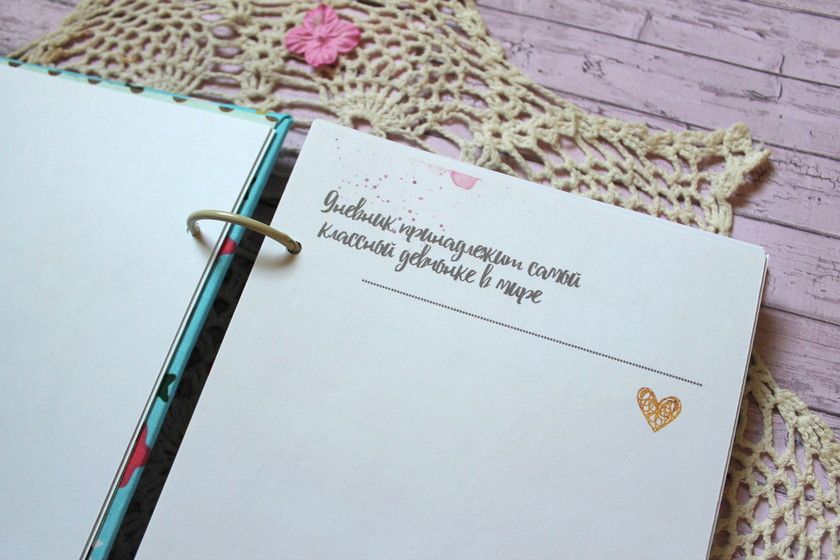 Дневник принадлежит самой
классной девчонке в мире